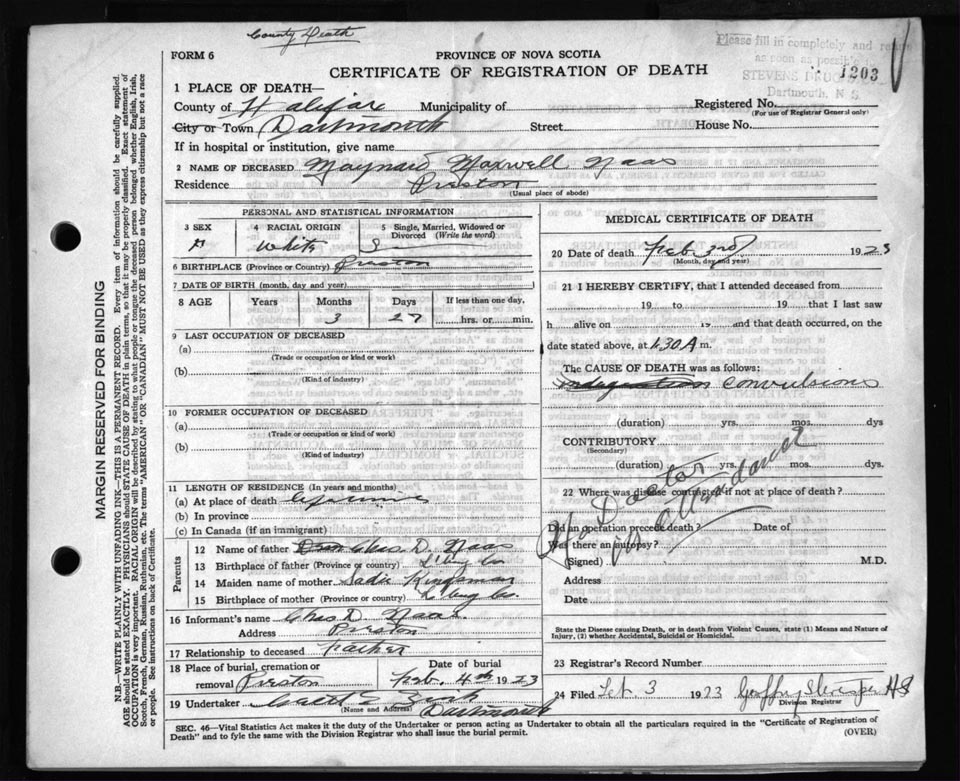 County Death
FORM 6
PROVINCE OF NOVA SCOTIA
CERTIFICATE OF REGISTRATION OF DEATH
Please fill in completely and
as soon as possible
STEVENS
Dartmouth, N S
1203
1 PLACE OF DEATH:
County of Halifax Municipality of
Registered No.
(For use of Registrar General only)
City or Town Dartmouth Street House No.
If in hospital or institution, give name
2 NAME OF DECEASED Maynard Maxwell Naas
Residence Preston
(Usual place of abode)
PERSONAL AND STATISTICAL INFORMATION
3 SEX 4 RACIAL ORIGIN 5 Single, Married, Widowed or Divorced (Write the word)
M White S
6 BIRTHPLACE (Province or Country) Preston
7 DATE OF BIRTH (month, day and year)
8 AGE Years Months Days If less than one day,
3 27 hrs. or min.
9 LAST OCCUPATION OF DECEASED
(a)
(Trade or occupation or kind or work)
(b)
(Kind of industry)
10 FORMER OCCUPATION OF DECEASED
(a)
(Trade or occupation or kind or work)
(b)
(Kind of industry)
11 LENGTH OF RESIDENCE (In years and months)
(a) At place of death
(b) In province
(c) In Canada (if an immigrant)
Parents
12 Name of father Chas D. Naas
13 Birthplace of father (Province or country) L'burg Co
14 Maiden name of mother Sadie Kingsman
15 Birthplace of mother (Province or country) L'burg Co.
16 Informant's name Chas D. Naas
Address Preston
17 Relationship to deceased Father
18 Place of burial, cremation or removal Preston Date of burial Feb. 4th 1923
19 Undertaker Dartmouth
(Name and Address)
MEDICAL CERTIFICATE OF DEATH
20 Date of death Feb 3rd 1923
(Month, day and year)
21 I HEREBY CERTIFY, that I attended deceased from
19 to 19 that I last saw
h alive on 19 and that death occurred, on the
date stated above, at 1.30 A m.
The CAUSE OF DEATH was as follows:
indigestion convulsions
(duration) yrs. mos. dys
CONTRIBUTORY
(Secondary)
(duration) yrs. mos. dys.
22 Where was disease contracted if not at place of death?
Did an operation precede death? Date of
Was there an autopsy?
(Signed) M.D.
Address
Date
No Doctor in attendance
State the Disease causing Death, or in death from Violent Causes, state (1) Means and Nature of Injury, (2) whether Accidental, Suicidal or Homicidal.
23 Registrar's Record Number
24 Filed Feb 3 1923
Division Registrar
SEC. 46—Vital Statistics Act makes it the duty of the Undertaker or person acting as Undertaker to obtain all the particulars required in the "Certificate of Registration of
Death" and to fyle same with the Division Registrar who shall issue the burial permit.
(OVER)
MARGIN RESERVED FOR BINDING
N.B.—WRITE PLAINLY WITH UNFADING INK—THIS IS A PERMANENT RECORD. Every item of information should be carefully supplied.
AGE should be stated EXACTLY. PHYSICIANS should STATE CAUSE OF DEATH in plain terms, so that it may be properly classified. Exact statement of
OCCUPATION is very important. RACIAL ORIGIN will be described by stating to what people or tongue the deceased person belonged whether English, Irish,
Scotch, French, German, Russian, Ruthenian, etc. The terms "AMERICAN" OR "CANADIAN" MUST NOT BE USED as they express citizenship but not a race
or people. See instructions on back of Certificate.